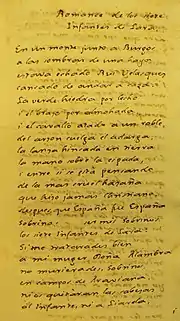 Romance de los siete
Infantes de Lara.
En un monte junto a Burgos
a las sombras de una haya
estava echado Rui Velasquez
cansado de andar a caza:
La verde hiedra por lecho
i el brazo por almohada
i el cavallo atado a un roble,
del arzon cuelga el adarga,
la lanza hincada en tierra
la mano sobre la espada,
i entre si se está pensando
de la mas cruel hazaña
que hizo jamas Castellano
despues que España fue España
Sobrino mis Sobrinos
los siete Infantes de Lara:
Si me matarades bien
a mi muger Doña Alambra
no murierades, Sobrinos
en campos de Araviana:
ni os quitaran las cabezas